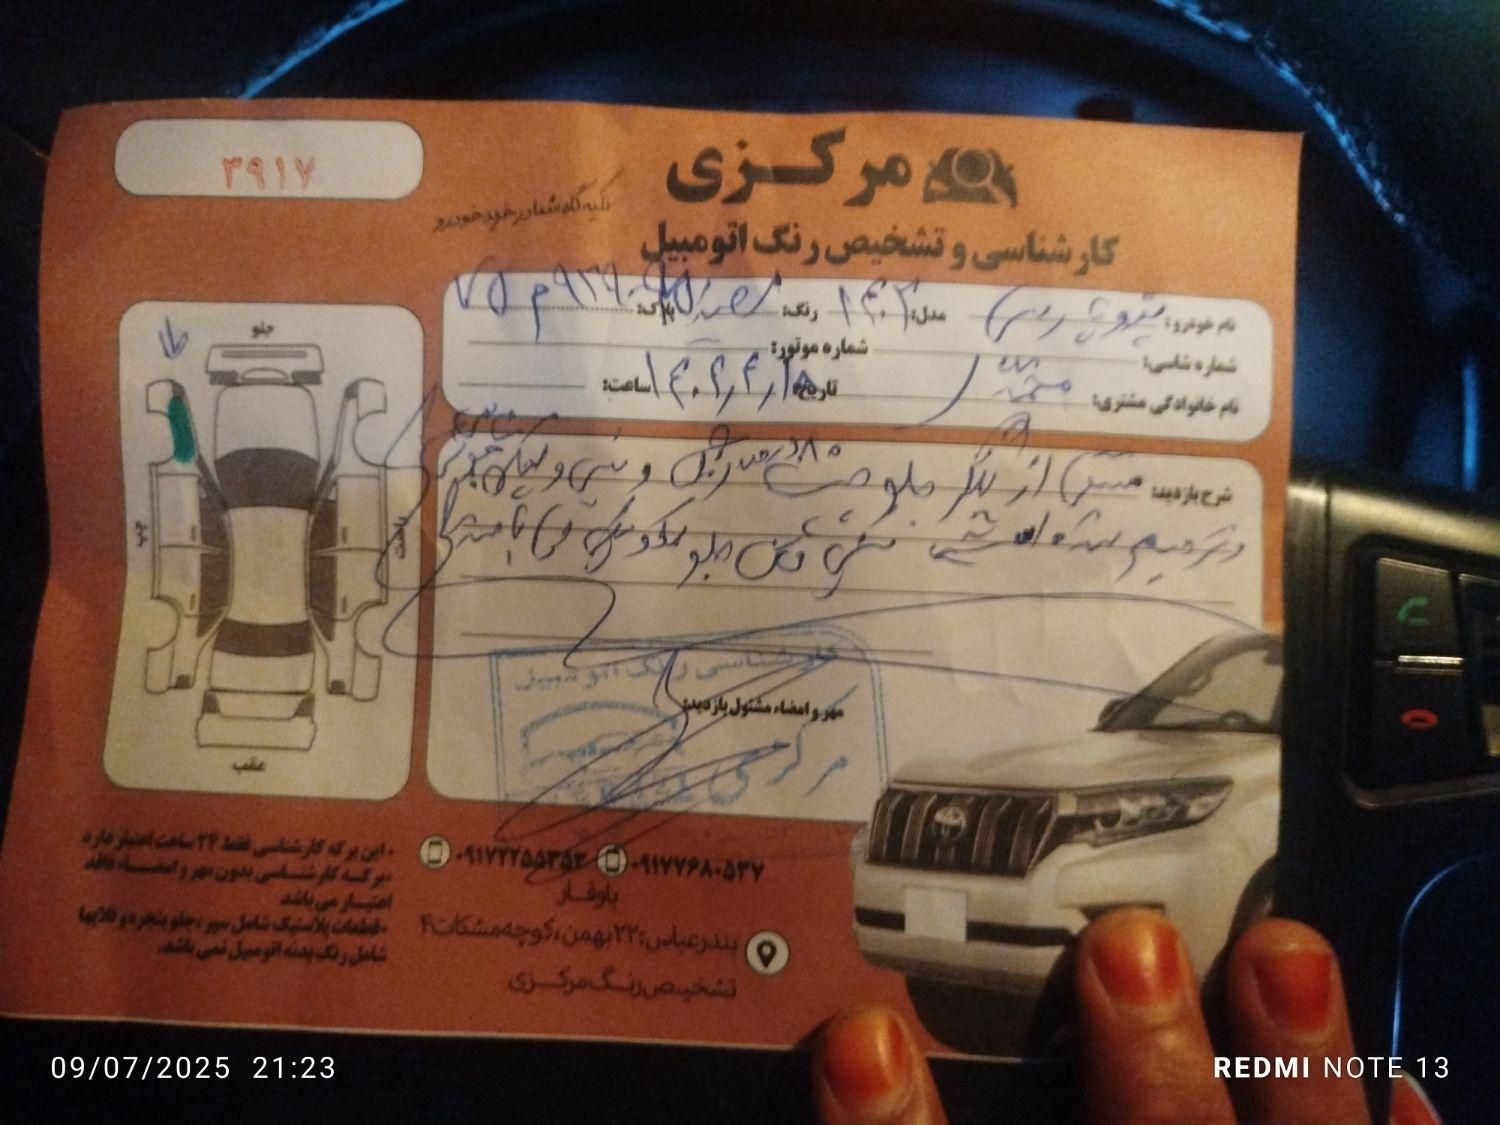 ۳۹۱۷
مرکزی
تکیه گاه شما در خرید خودرو
کارشناسی و تشخیص رنگ اتومبیل
نام خودرو: پژو پارس مدل: ۱۴۰۲ رنگ: سفید پلاک:
شماره شاسی: شماره موتور:
نام خانوادگی مشتری: تاریخ: ۱۴۰۴,۴,۱۸ ساعت:
شرح بازدید: از گلگیر جلو چپ ۸۰ درصد رنگ و
و ترمیم شده است
مهر و امضاء مسئول بازدید:
کارشناسی رنگ اتومبیل
مرکزی
جلو
چپ
راست
عقب
• این برگه کارشناسی فقط ۲۴ ساعت اعتبار دارد.
• برگه کارشناسی بدون مهر و امضاء فاقد
اعتبار می باشد
• قطعات پلاستیک شامل سپر، جلو پنجره و قلابها
شامل رنگ بدنه اتومبیل نمی باشد.
۰۹۱۷۷۶۸۰۵۳۷ ۰۹۱۷۲۲۵۵۳۵۳
باوقار
بندرعباس: ۲۲ بهمن، کوچه مشکات ۴
تشخیص رنگ مرکزی
09/07/2025 21:23
REDMI NOTE 13